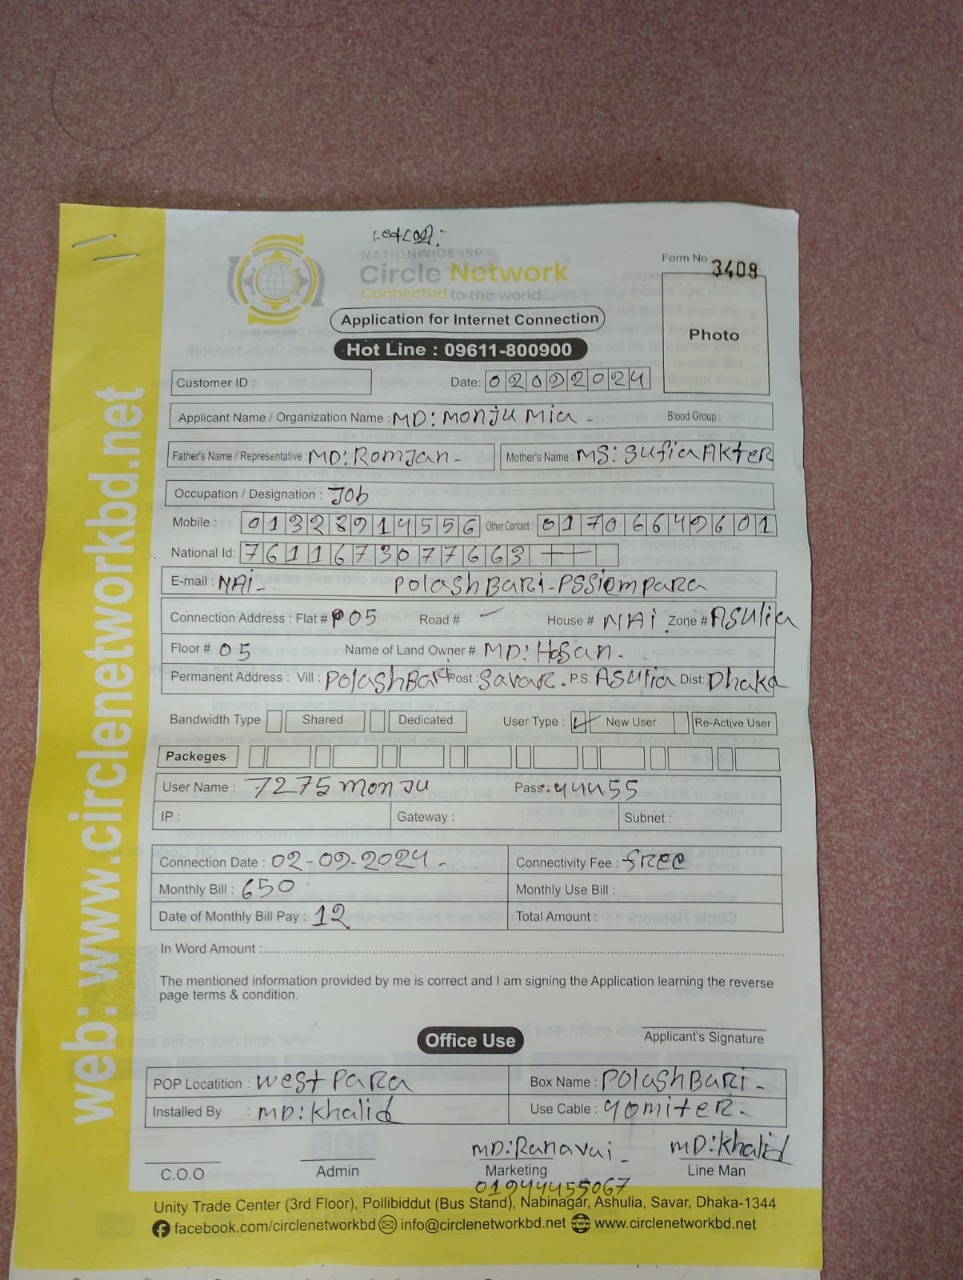 NATIONWIDE ISP
Circle Network
Connected to the world...
Form No 3408
Photo
Application for Internet Connection
Hot Line : 09611-800900
Customer ID :
Date: 02092024
Applicant Name / Organization Name : MD: MONJU Mia - Blood Group :
Father's Name / Representative : MD: ROMJan - Mother's Name : MS: Sufia AKter
Occupation / Designation : Job
Mobile : 01328914556 Other Contact : 01706649601
National Id: 7611673077663
E-mail : NAi- POlASHBARi-PSSiempara
Connection Address : Flat # 05 Road # - House # NAi Zone # ASulia
Floor # 05 Name of Land Owner # MD: Hosan -
Permanent Address : Vill : POlaShBari Post : Savar. P.S. ASUlia Dist: Dhaka
Bandwidth Type Shared Dedicated User Type : ✓ New User Re-Active User
Packeges
User Name : 7275monju Pass:
IP : Gateway : Subnet :
Connection Date : 02-09-2024 - Connectivity Fee : free
Monthly Bill : 650 Monthly Use Bill :
Date of Monthly Bill Pay : 12 Total Amount :
In Word Amount :
The mentioned information provided by me is correct and I am signing the Application learning the reverse
page terms & condition.
Applicant's Signature
Office Use
POP Locatition : West PaRa Box Name : POlashBaRi -
Installed By : MD: Khalid Use Cable : 90miteR.
MD: Ranavai - MD: Khalid
C.O.O Admin Marketing Line Man
01944455067
Unity Trade Center (3rd Floor), Pollibiddut (Bus Stand), Nabinagar, Ashulia, Savar, Dhaka-1344
facebook.com/circlenetworkbd info@circlenetworkbd.net www.circlenetworkbd.net
web: www.circlenetworkbd.net